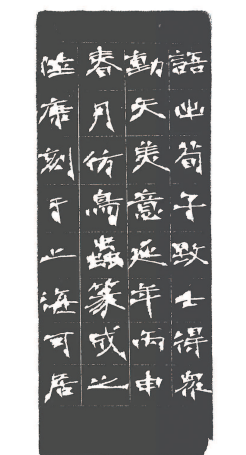 語出荀子致士得眾
動天美意延年丙申
春月仿鳥蟲篆成之
陸康刻于上海可居